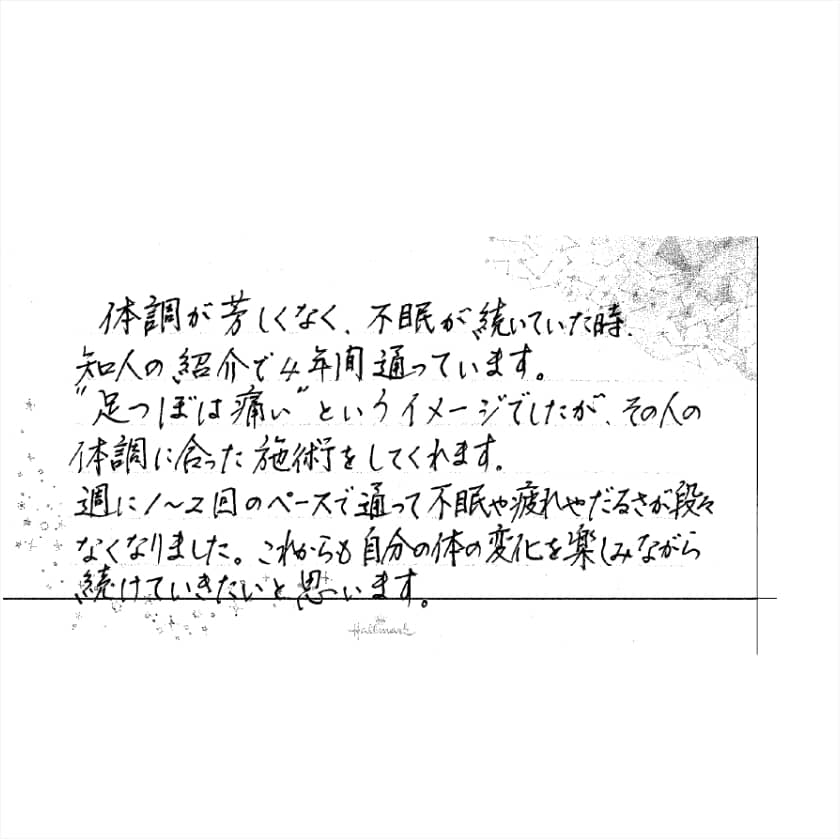 体調が芳しくなく、不眠が続いていた時、
知人の紹介で4年間通っています。
"足つぼは痛い"というイメージでしたが、その人の
体調に合った施術をしてくれます。
週に1〜2回のペースで通って不眠や疲れやだるさが段々
なくなりました。これからも自分の体の変化を楽しみながら
続けていきたいと思います。
Hallmark